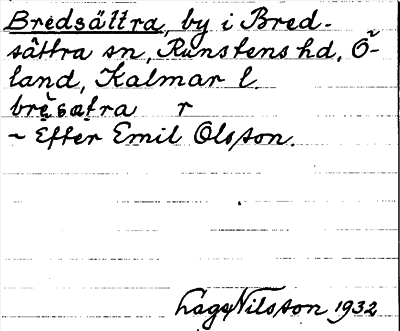 Bredsättra, by i Bred-
sättra sn, Runstens hd, Ö-
land, Kalmar l.
brèsætra r
~ Efter Emil Olsson.
Lage Nilsson 1932